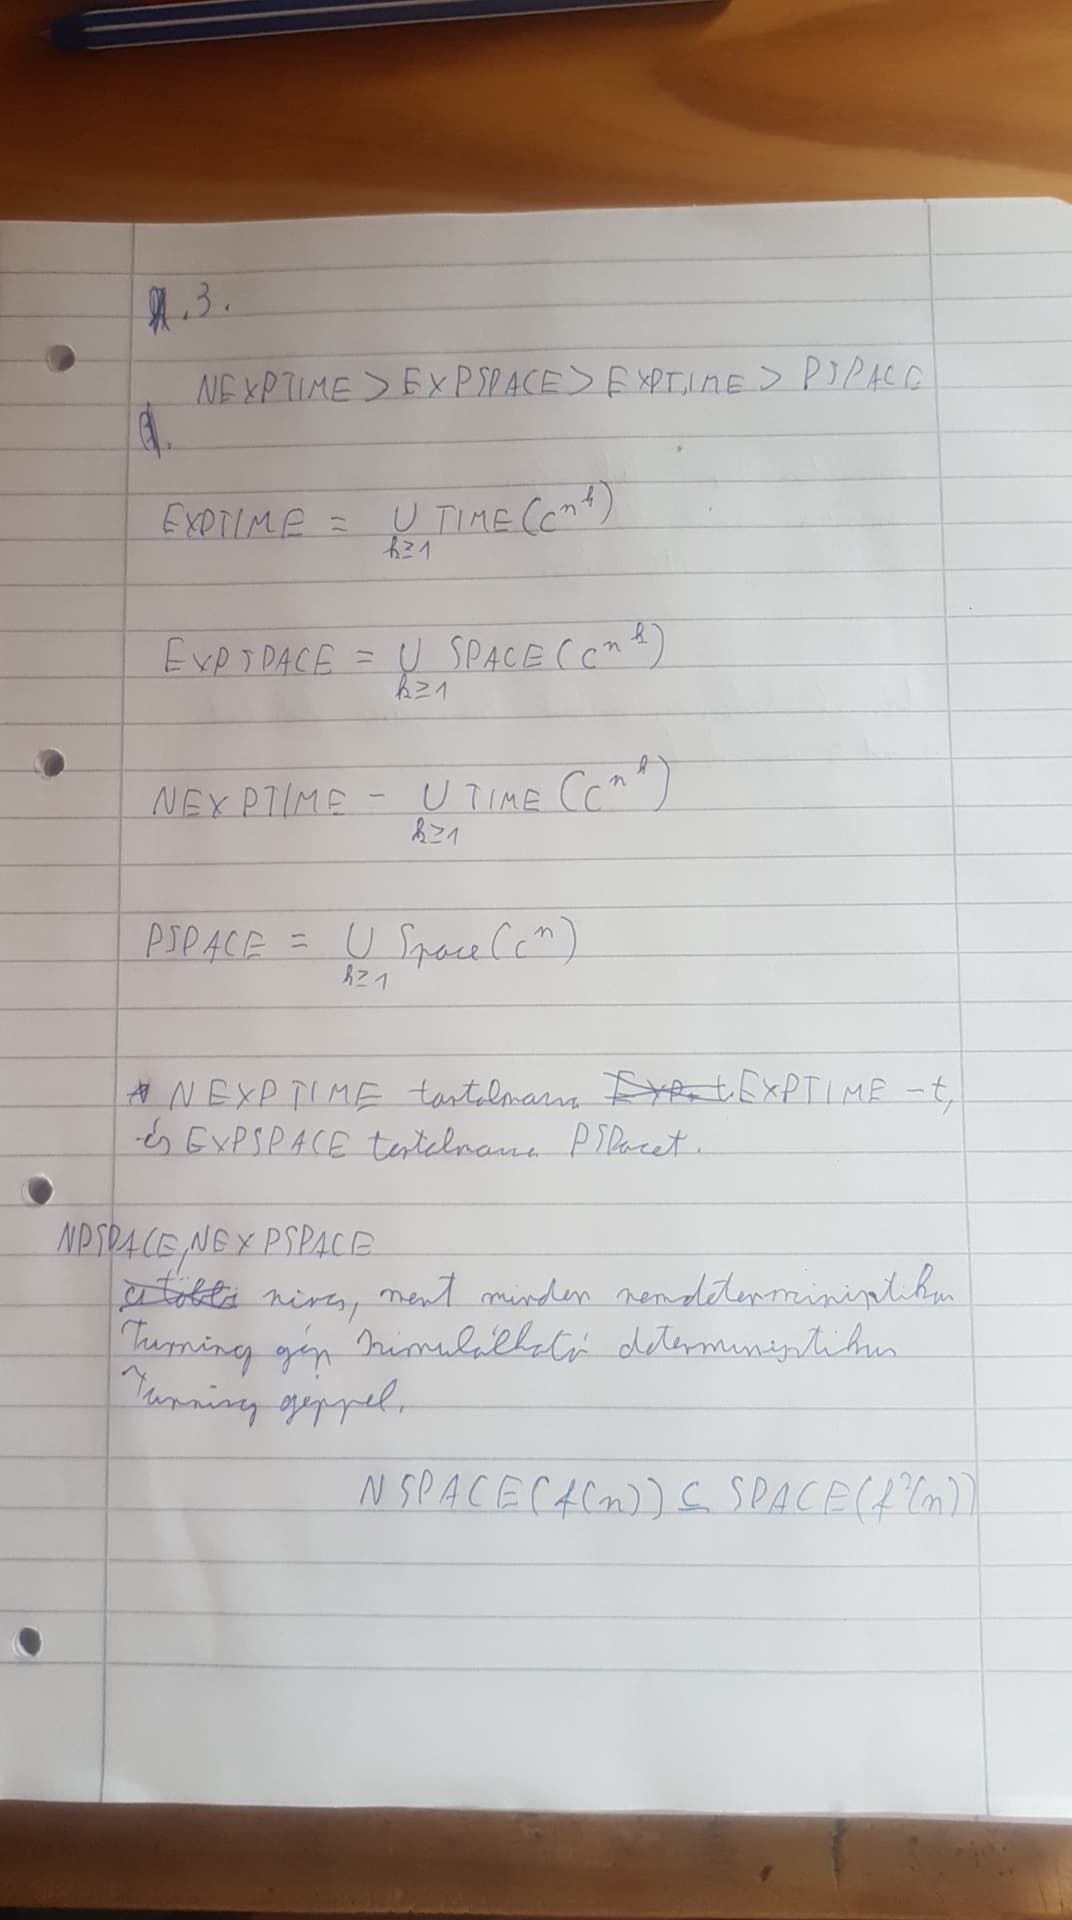 3.
NEXPTIME > EXPSPACE > EXPTIME > PSPACE
EXPTIME = U TIME (c^n^k)
k≥1
EXPSPACE = U SPACE (c^n^k)
k≥1
NEXPTIME - U TIME (c^n^k)
k≥1
PSPACE = U Space (c^n)
k≥1
NEXPTIME EXPTIME -t,
és EXPSPACE PSPacet.
NPSPACE, NEXPSPACE
nincs, mert minden nemdeterminisztikus
Turning gép szimulálható determinisztikus
Turning géppel.
NSPACE(f(n)) ⊆ SPACE(f²(n))